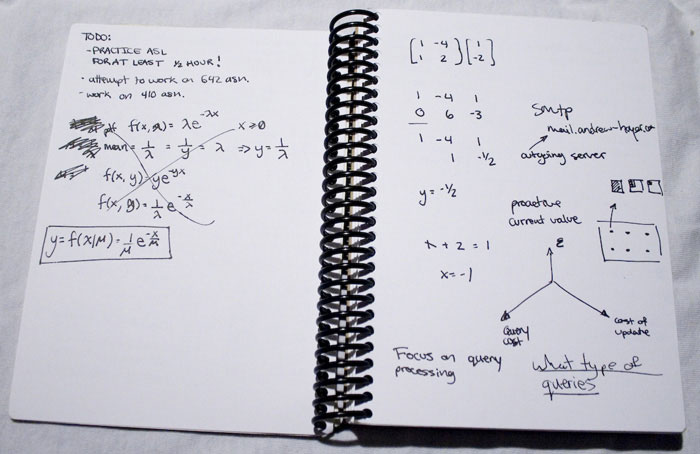 TODO:
- PRACTICE ASL
FOR AT LEAST 1/2 HOUR!
- attempt to work on 642 asn.
- work on 410 asn.
f(x,λ) = λe^-λx x ≥ 0
mean = 1/λ = 1/y = λ ⇒ y = 1/λ
f(x, y) = ye^-yx
f(x, y) = 1/λ e^-x/λ
y = f(x|μ) = 1/μ e^-x/μ
[1 -4] [1]
[1 2] [-2]
1 -4 1
0 6 -3
1 -4 1
1 -1/2
y = -1/2
x + 2 = 1
x = -1
Smtp
outgoing server
proactive
current value
ε
Query
cost
cost of
update
Focus on query
processing
what type of
queries